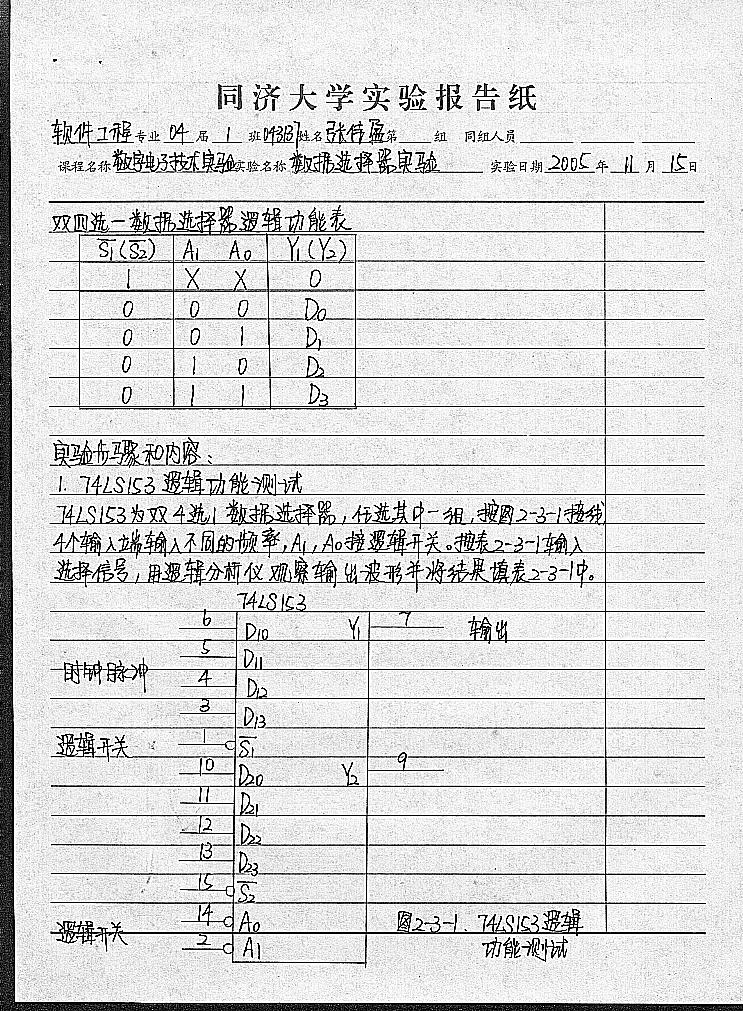 同济大学实验报告纸
软件工程专业 04 届 1 班 043137 姓名 张倩盈 第 组 同组人员
课程名称 数字电子技术实验 实验名称 数据选择器实验 实验日期 2005 年 11 月 15 日
双四选一数据选择器逻辑功能表
S̅1(S̅2) A1 A0 Y1(Y2)
1 X X 0
0 0 0 D0
0 0 1 D1
0 1 0 D2
0 1 1 D3
实验步骤和内容:
1. 74LS153逻辑功能测试
74LS153为双4选1数据选择器,任选其中一组,按图2-3-1接线
4个输入端输入不同的频率,A1,A0接逻辑开关。按表2-3-1输入
选择信号,用逻辑分析仪观察输出波形并将结果填表2-3-1中。
74LS153
6 D10 Y1 7 输出
5 D11
时钟脉冲 4 D12
3 D13
逻辑开关 1 S̅1
10 D20 Y2 9
11 D21
12 D22
13 D23
15 S̅2
14 A0 图2-3-1、74LS153逻辑
逻辑开关 2 A1 功能测试